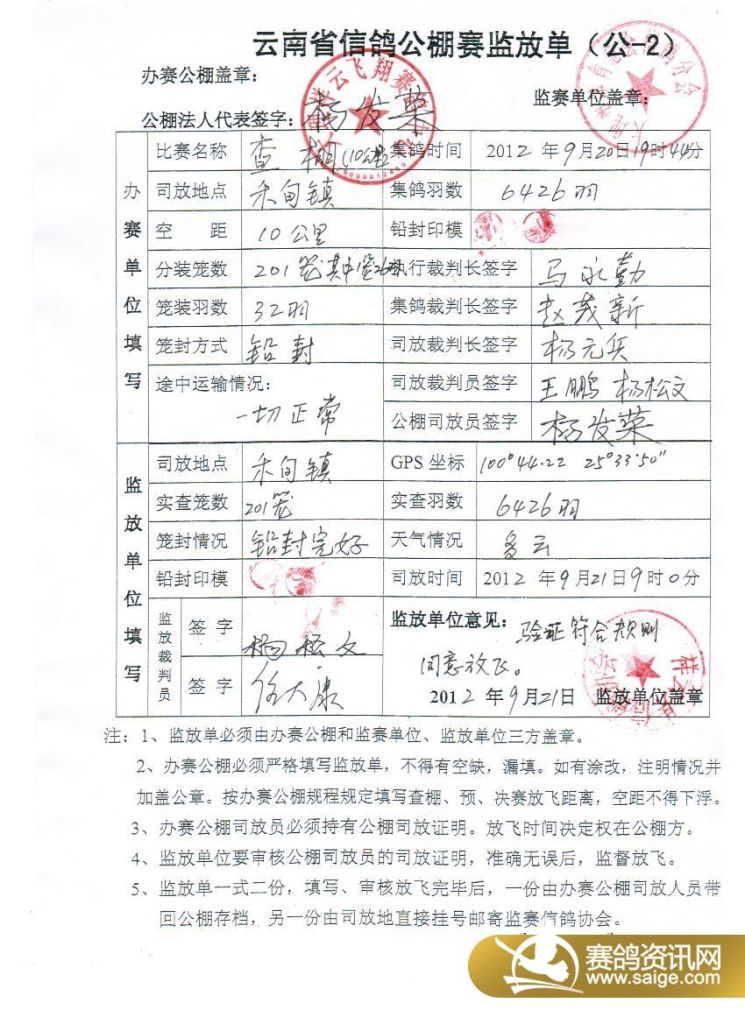 云南省信鸽公棚赛监放单（公-2）
办赛公棚盖章：
监赛单位盖章：
公棚法人代表签字：杨发荣
办赛单位填写
比赛名称 查棚（10公里） 集鸽时间 2012年9月20日19时44分
司放地点 禾甸镇 集鸽羽数 6426羽
空距 10公里 铅封印模
分装笼数 201笼其中1笼26羽 执行裁判长签字 马永勤
笼装羽数 32羽 集鸽裁判长签字 赵茂新
笼封方式 铅封 司放裁判长签字 杨元兵
途中运输情况： 司放裁判员签字 王鹏 杨松文
一切正常 公棚司放员签字 杨发荣
监放单位填写
司放地点 禾甸镇 GPS坐标 100°44.22 25°33'50"
实查笼数 201笼 实查羽数 6426羽
笼封情况 铅封完好 天气情况 多云
铅封印模 司放时间 2012年9月21日9时0分
监放裁判员
签字 杨松文 监放单位意见：验证符合规则
同意放飞。
签字 任大康 2012年9月21日 监放单位盖章
注：1、监放单必须由办赛公棚和监赛单位、监放单位三方盖章。
2、办赛公棚必须严格填写监放单，不得有空缺，漏填。如有涂改，注明情况并
加盖公章。按办赛公棚规程规定填写查棚、预、决赛放飞距离，空距不得下浮。
3、办赛公棚司放员必须持有公棚司放证明。放飞时间决定权在公棚方。
4、监放单位要审核公棚司放员的司放证明，准确无误后，监督放飞。
5、监放单一式二份，填写、审核放飞完毕后，一份由办赛公棚司放人员带
回公棚存档，另一份由司放地直接挂号邮寄监赛信鸽协会。
赛鸽资讯网
www.saige.com